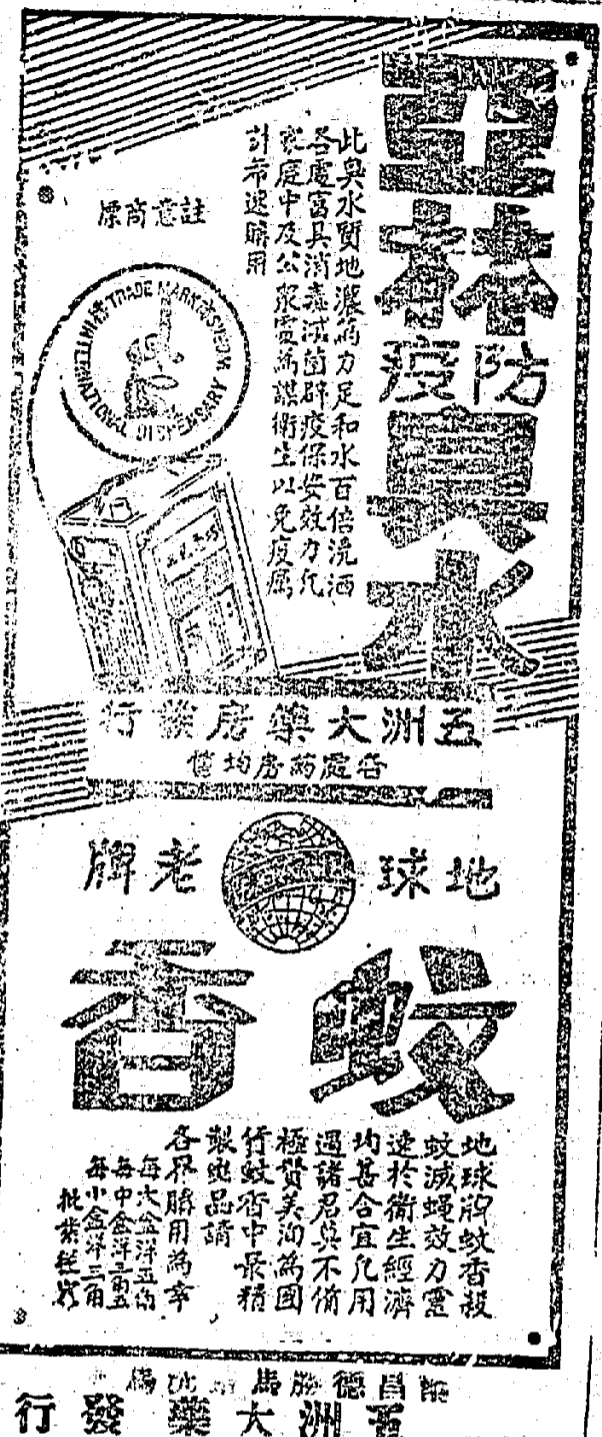 亞林
防疫
臭水
此臭水質地濃厚力足和水百倍洗洒
各處富具消毒滅菌辟疫保安效力凡
家庭中及公衆處為謀衛生以免疫癘
計希選購用
註意商標
TRADE MARK
INTERNATIONAL DISPENSARY
五洲大藥房發行
各處藥房均售
地球老牌
蚊香
地球牌蚊香殺
蚊滅蝇效力靈
速於衛生經濟
均甚合宜凡用
過諸君莫不備
極贊美洵為國
貨蚊香中最精
製總品請
各界購用為幸
每大盒洋五角
每中盒洋三角五
每小盒洋三角
批業從廉
五洲大藥發行